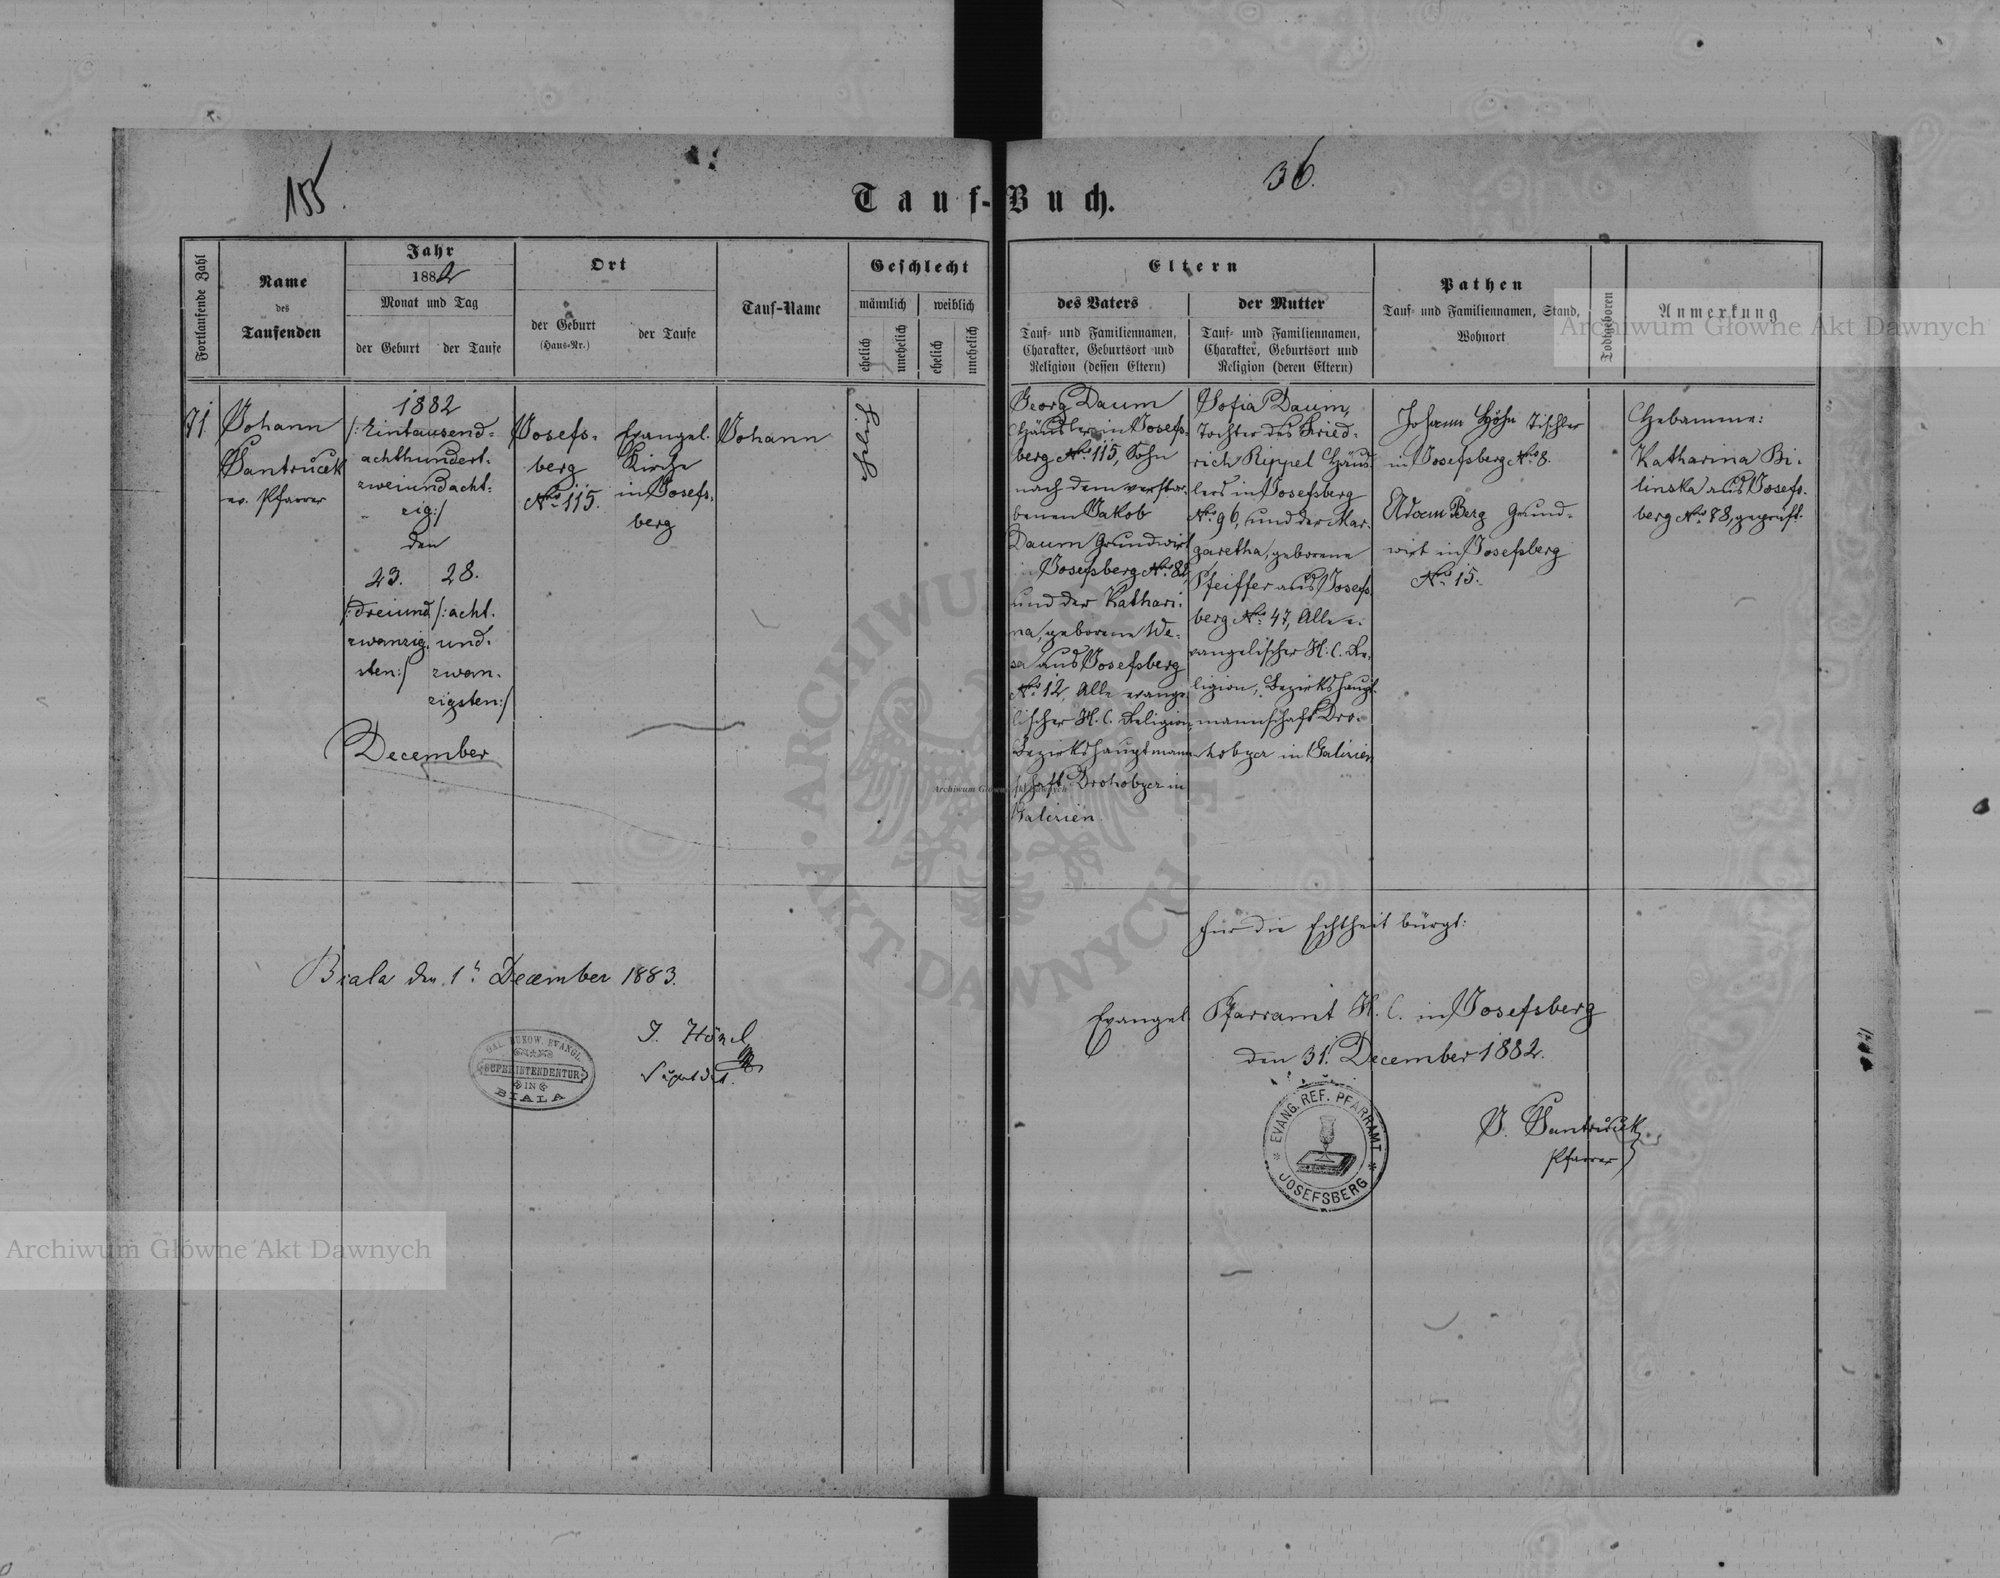 155.
36.
Tauf-Buch.
Fortlaufende Zahl
Name
des
Taufenden
Jahr
1882
Monat und Tag
der Geburt
der Taufe
Ort
der Geburt
(Haus-Nr.)
der Taufe
Tauf-Name
Geschlecht
männlich
weiblich
ehelich
unehelich
ehelich
unehelich
Eltern
des Vaters
Tauf- und Familiennamen,
Charakter, Geburtsort und
Religion (dessen Eltern)
der Mutter
Tauf- und Familiennamen,
Charakter, Geburtsort und
Religion (deren Eltern)
Pathen
Tauf- und Familiennamen, Stand,
Wohnort
Todtgeboren
Anmerkung
71
Johann
Jantrůcek
ev. Pfarrer
1882
/:Eintausend-
achthundert-
zweiundacht-
zig:/
den
23. 28.
/:dreiund /:acht-
zwanzig- und-
sten:/ zwan-
zigsten:/
December
Josefs-
berg
Nro 115.
Evangel.
Kirche
in Josefs-
berg
Johann
ehelich
Georg Daum
Häusler in Josefs-
berg Nro 115, Sohn
nach dem verstor-
benen Jakob
Daum Grundwirt
in Josefsberg Nro 82
und der Kathari-
na, geborene We-
sa aus Josefsberg
Nro 12, Alle evange-
lischer H. C. Religion,
Bezirkshauptmann-
schaft Drohobycz in
Galizien.
Sofia Daum,
Tochter des Fried-
rich Rippel Häus-
lers in Josefsberg
No 96, und der Mar-
garetha, geborene
Pfeiffer aus Josefs-
berg Nro 47, Alle e-
vangelischer H. C. Re-
ligion, Bezirkshaupt-
mannschaft Dro-
hobycz in Galizien
Johann Höhn Tischler
in Josefsberg Nro 8.
Adam Berg Grund-
wirt in Josefsberg
Nro 15.
Hebamme:
Katharina Bi-
linska aus Josefs-
berg Nro 78, geprüft.
Für die Echtheit bürgt:
Evangel. Pfarramt H. C. in Josefsberg
den 31. December 1882.
J. Jantrůcek
Pfarrer
EVANG. REF. PFARRAMT
JOSEFSBERG
Biala den 1t December 1883.
J. Hönel
Suptdt.
GAL. BUKOW. EVANGL.
SUPERINTENDENTUR
IN
BIALA
Archiwum Główne Akt Dawnych
Archiwum Główne Akt Dawnych
Archiwum Główne Akt Dawnych
ARCHIWUM
AKT DAWNYCH